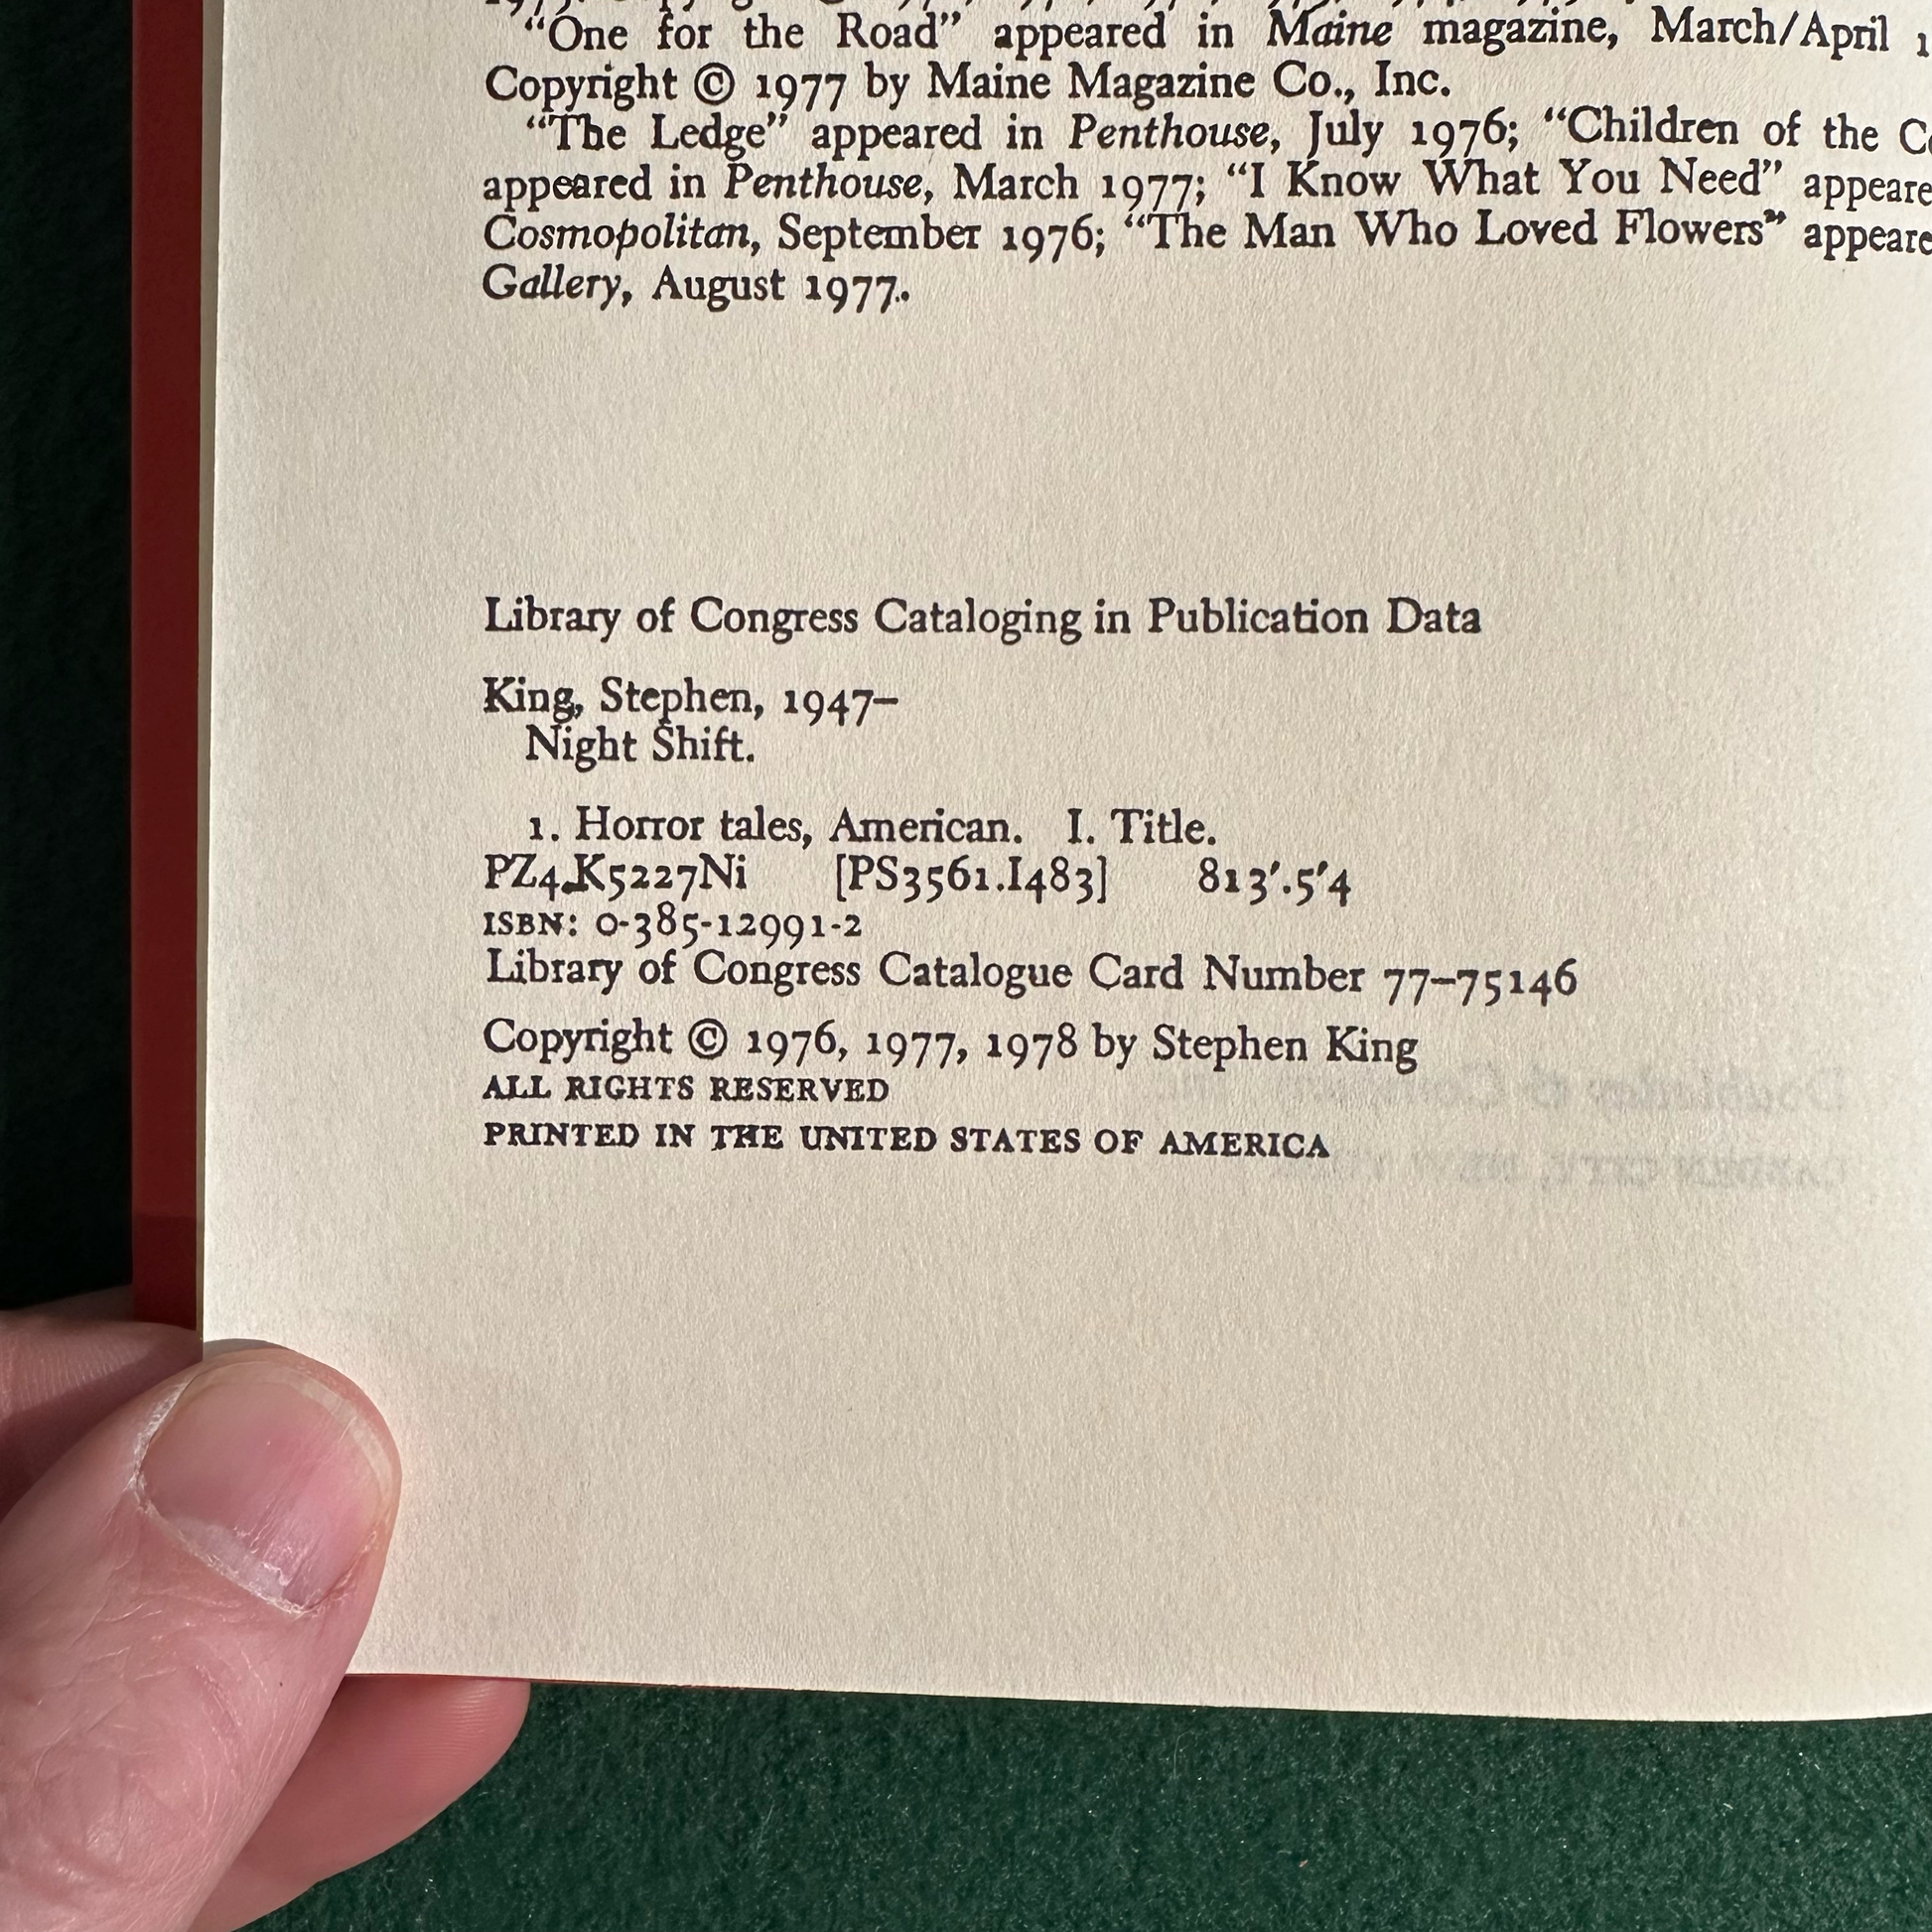 "One for the Road" appeared in Maine magazine, March/April
Copyright © 1977 by Maine Magazine Co., Inc.
"The Ledge" appeared in Penthouse, July 1976; "Children of the
appeared in Penthouse, March 1977; "I Know What You Need" appeare
Cosmopolitan, September 1976; "The Man Who Loved Flowers" appeare
Gallery, August 1977.
Library of Congress Cataloging in Publication Data
King, Stephen, 1947–
Night Shift.
1. Horror tales, American. I. Title.
PZ4.K5227Ni [PS3561.I483] 813'.5'4
ISBN: 0-385-12991-2
Library of Congress Catalogue Card Number 77–75146
Copyright © 1976, 1977, 1978 by Stephen King
ALL RIGHTS RESERVED
PRINTED IN THE UNITED STATES OF AMERICA